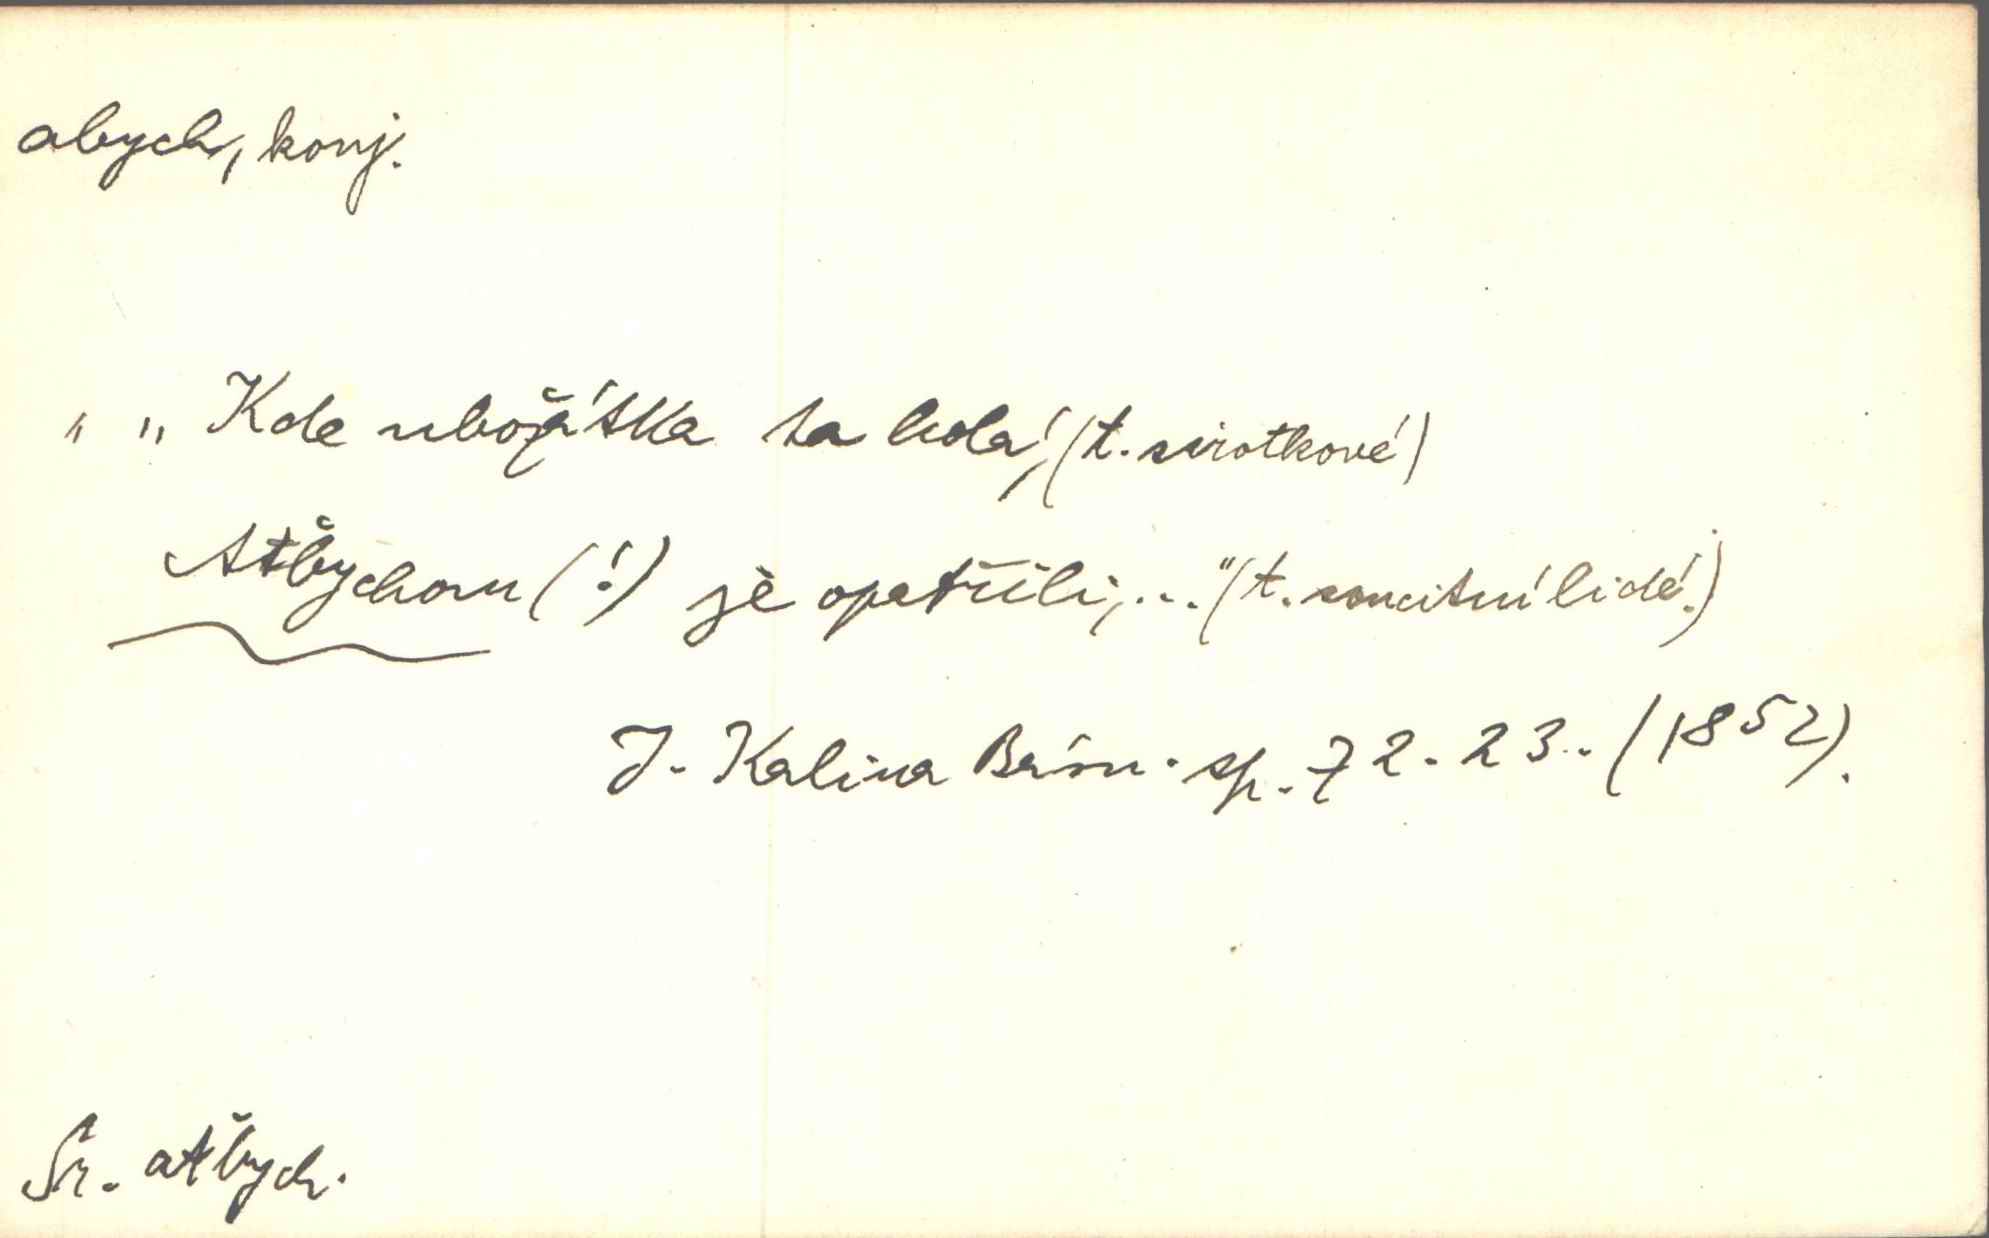 abych, konj.
" „Kde ubožátka ta lkala, (t. sirotkové)
Atbychom (!) je opatřili,..." (t. soucitní lidé.)
J. Kalina Básn. sp. 72. 23. (1852).
Sr. atbych.